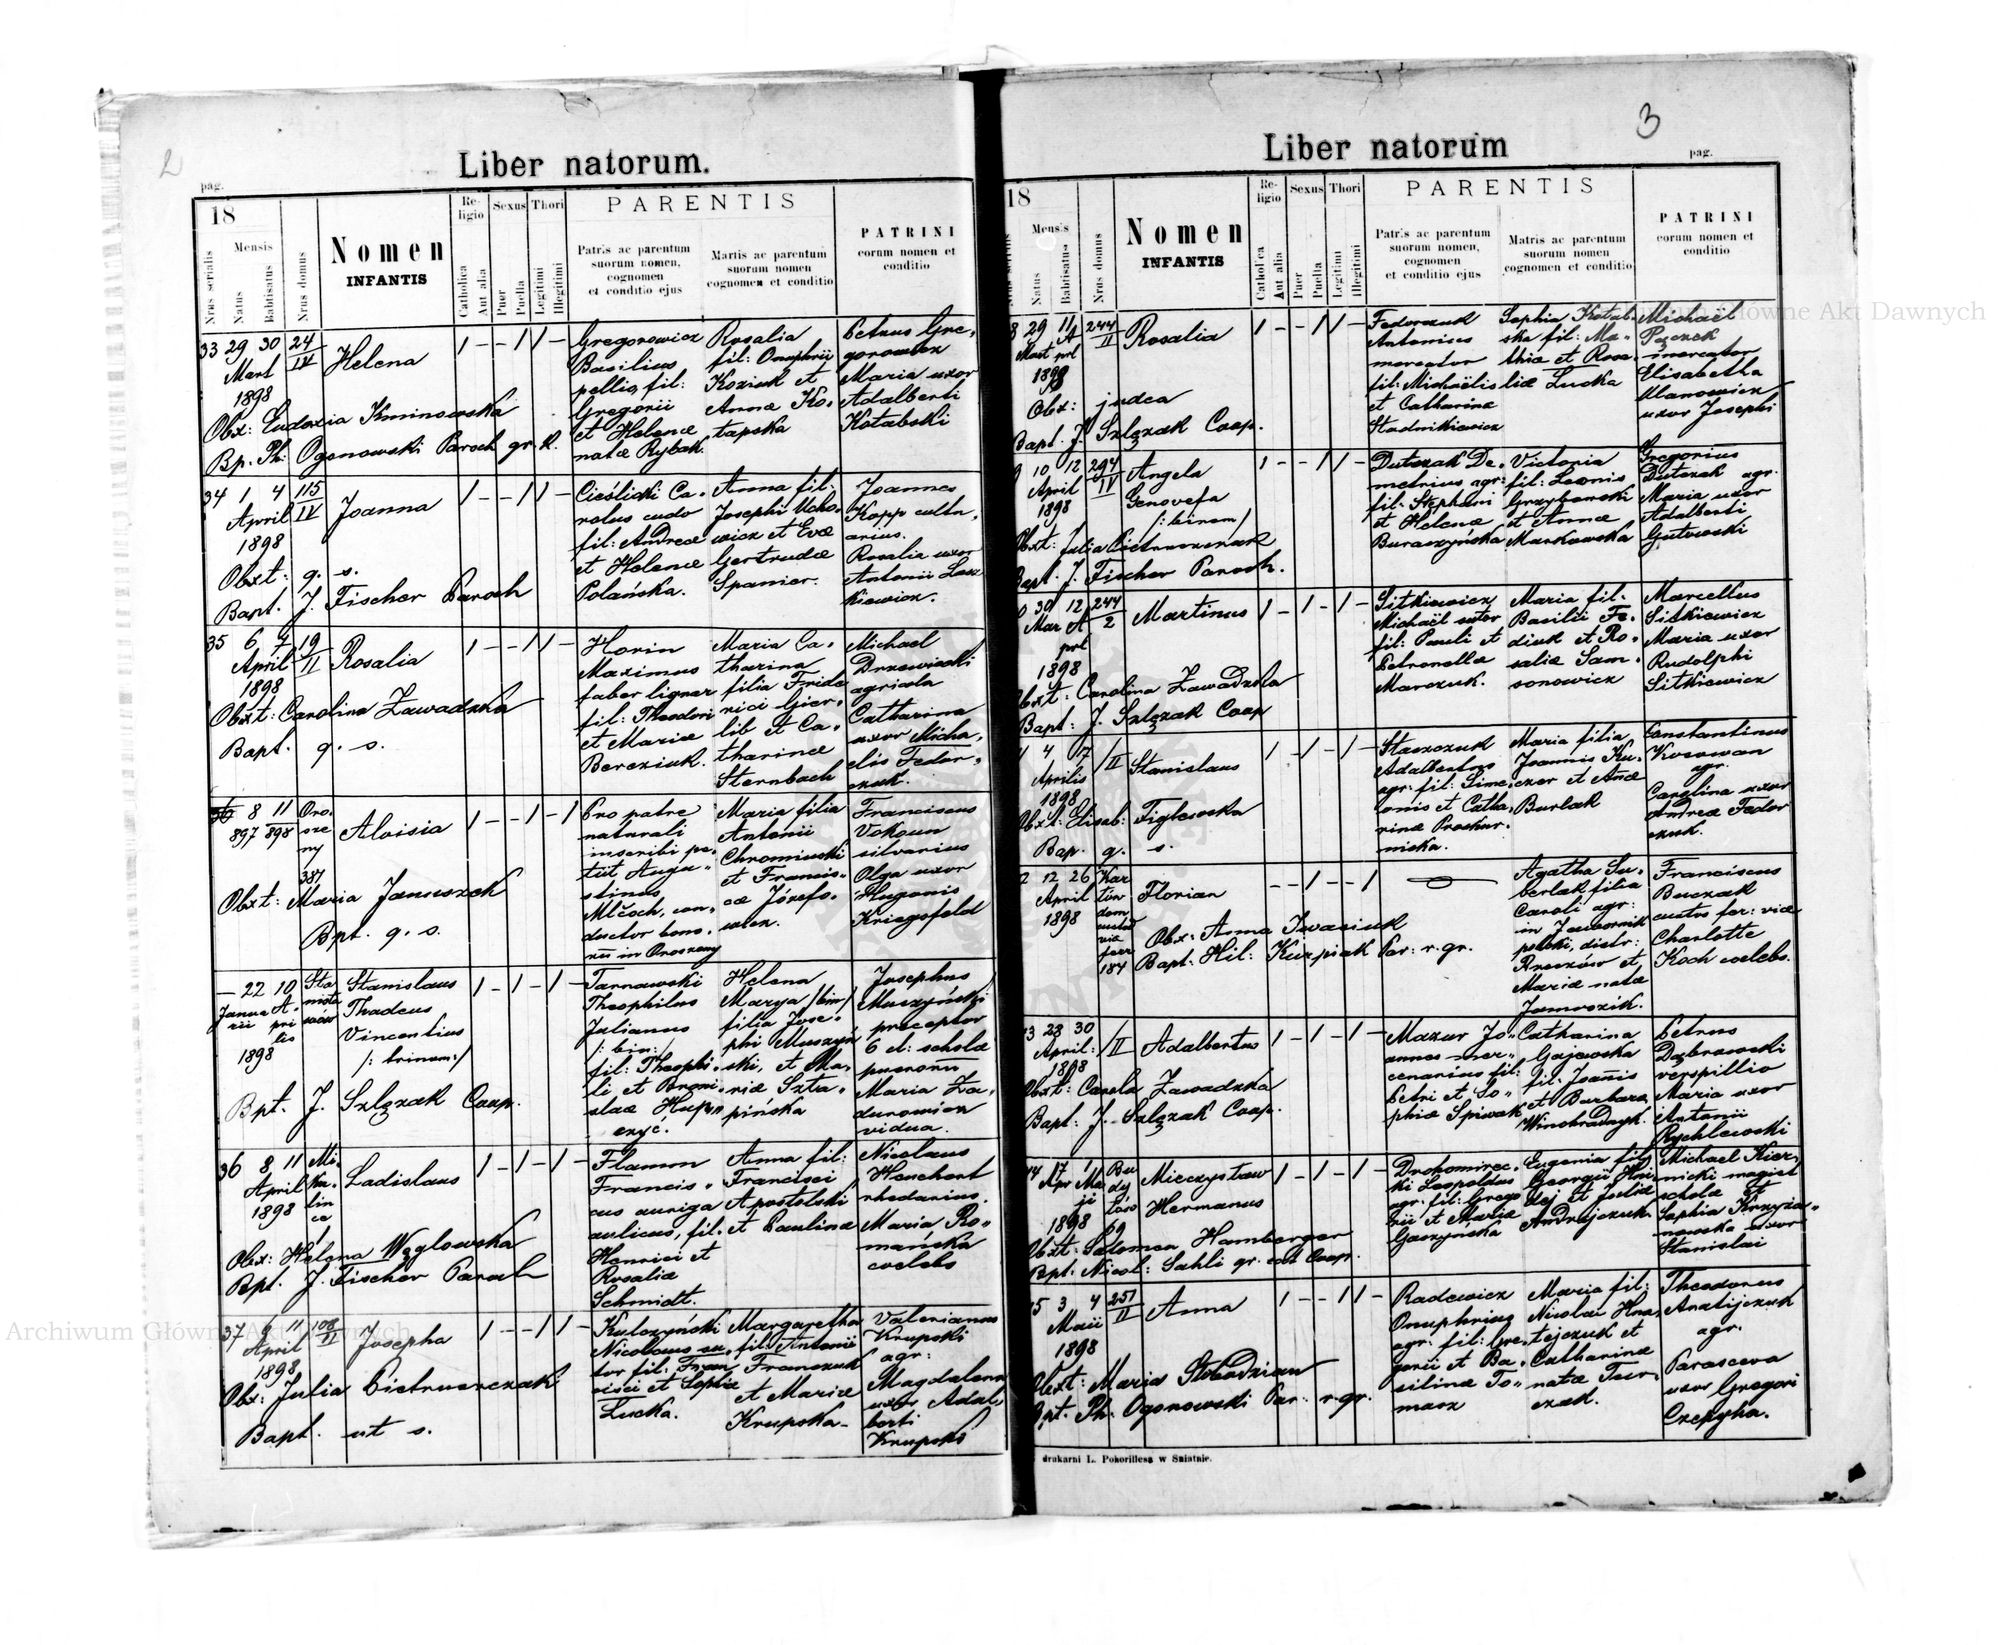 2
Liber natorum.
pag.
18
Nrus serialis
Mensis
Natus
Babtisatus
Nrus domus
Nomen
INFANTIS
Re-
ligio
Catholica
Aut alia
Sexus
Puer
Puella
Thori
Legitimi
Illegitimi
PARENTIS
Patris ac parentum
suorum nomen,
cognomen
et conditio ejus
Martis ac parentum
suorum nomen
cognomen et conditio
PATRINI
eorum nomen et
conditio
33 29 30 24/IV Helena 1 - - 1 1 -
Mart
1898
Obx: Eudoxia Kminowska
Bp. Ph. Ogonowski Paroch gr. r.
Gregorowicz
Basilius
pellio, fil:
Gregorii
et Helenæ
natæ Rybak.
Rosalia
fil: Onuphrii
Koziuk et
Annæ Ko-
tapska
Petrus Gre-
gorowicz
Maria uxor
Adalberti
Kotabski
34 1 4 115/IV Joanna 1 - - 1 1 -
April
1898
Obxt: q. s.
Bapt. J. Fischer Paroch
Cieślicki Ca-
rolus cudo
fil: Andreæ
et Helenæ
Polańska.
Anna fil:
Josephi Ucho-
wicz et Evæ
Gertrudæ
Spanier.
Joannes
Kopp cultn-
arius.
Rosalia uxor
Antonii Lasz
kiewicz.
35 6 7 19/II Rosalia 1 - - 1 1 -
April
1898
Obxt: Carolina Zawadzka
Bapt. q. s.
Horin
Maximus
faber lignar
fil: Theodori
et Mariæ
Bereziuk.
Maria Ca-
tharina
filia Fride
rici Gier-
lib et Ca-
tharinæ
Sternbach
Michael
Drzewiecki
agricola
Catharina
uxor Micha-
elis Fedor-
czuk.
36 8 11 Oro-
897 898 sze
ny
387
Aloisia 1 - - 1 - 1
Obxt: Maria Januszek
Bpt. q. s.
Pro patre
naturali
inscribi pe-
tiit Augu-
stinus
Mlčoch, con-
ductor bono-
rum in Oroszeny
Maria filia
Antonii
Chromiuski
et Francis-
cæ Józefo-
wicz.
Franciscus
Vokoun
silvarius
Olga uxor
Hugonis
Kriegsfeld
— 22 10 Sta
Janua A- nisła
rii pri wów
lis
1898
Stanislaus
Thadeus
Vincentius
/: trinom:/
1 - 1 - 1 -
Bpt. J. Szlęzak Coop.
Tarnawski
Theophilus
Julianus
/: bin:/
fil: Theophi-
li et Broni-
slaæ Hupa
czyć.
Helena
Marya /bin/
filia Jose-
phi Muszyń
ski, et Ma-
riæ Sztu-
pińska
Josephus
Muszyński
præceptor
6 cl: scholæ
puerorum
Maria Za-
durowicz
vidua.
36 8 11 Mi-
April ku-
1898 lin
ce
Ladislaus 1 - 1 - 1 -
Obx: Helena Węglowska
Bpt. J. Fischer Paroch
Flamm
Francis-
cus auriga
aulicus, fil.
Henrici et
Rosaliæ
Schmidt.
Anna fil:
Francisci
Apostolski
et Paulinæ
Nicolaus
Heuchert
rhedarius.
Maria Ro-
mańska
coelebs
37 9 11 108/II Josepha 1 - - 1 1 -
April
1898
Obx: Julia Pietruszczak
Bapt. ut s.
Kulczyński
Nicolaus su-
tor fil: Fran
cisci et Sophiæ
Lucka.
Margaretha
fil: Antonii
Franczuk
et Mariæ
Krupska-
Valerianus
Krupski
agr:
Magdalena
uxor Adal-
berti
Krupski
3
Liber natorum
pag.
18
Mensis
Natus
Babtisatus
Nrus domus
Nomen
INFANTIS
Re-
ligio
Catholica
Aut alia
Sexus
Puer
Puella
Thori
Legitimi
Illegitimi
PARENTIS
Patris ac parentum
suorum nomen,
cognomen
et conditio ejus
Matris ac parentum
suorum nomen
cognomen et conditio
PATRINI
eorum nomen et
conditio
8 29 11 244/II Rosalia 1 - - 1 1 -
Mart A prl
1898
Obx: judca
Bapt. J. Szlęzak Coop.
Fedorczuk
Antonius
mercator
fil: Michaëlis
et Catharinæ
Stadnikiewicz
Sophia Kotab-
ska fil: Ma-
thiæ et Rosa-
liæ Lucka
Michael
Pączek
mercator
Elisabetha
Ulanowicz
uxor Josephi
9 10 12 294/IV Angela
April Genovefa
1898 /: binom/
1 - - 1 1 -
Obxt: Julia Pietruszczak
Bapt. J. Fischer Paroch.
Dutczak De-
metrius agr:
fil: Stephani
et Helenæ
Buraczyńska
Victoria
fil: Leonis
Grzybowski
et Annæ
Markowska
Gregorius
Dutczak agr.
Maria uxor
Adalberti
Gutowski
0 30 12 244/2 Martinus 1 - 1 - 1 -
Mar A prl
1898
Obxt: Carolina Zawadzka
Bapt: J. Szlęzak Coop
Sitkiewicz
Michaël sutor
fil: Pauli et
Petronellæ
Marczuk.
Maria fil:
Basilii Fe-
diuk et Ro-
saliæ Sam-
sonowicz
Marcellus
Sitkiewicz
Maria uxor
Rudolphi
Sitkiewicz
1 4 17 /II Stanislaus 1 - 1 - 1 -
Aprilis
1898
Obxt: Elisab: Figlewska
Bap. q. s.
Staszczuk
Adalbertus
agr: fil: Sime-
onis et Catha-
rinæ Proskur-
niska.
Maria filia
Joannis Ku-
czer et Añæ
Burlak
Constantinus
Kosowan
agr.
Carolina uxor
Andreæ Fedor
czuk.
2 12 26 Kar
April tin
1898 dom
custod
viæ
ferr
184
Florian - - 1 - - 1
Obx: Anna Iwasiuk
Bapt: Hil: Kurpiak Par: r. gr.
Agatha Su-
berlak filia
Caroli agr:
in Jawornik
polski, distr:
Rzeszów et
Mariæ natæ
Jamrozik.
Franciscus
Buczak
custos fer: viæ
Charlotte
Koch coelebs.
3 28 30 /II Adalbertus 1 - 1 - 1 -
April:
1898
Obxt: Carola Zawadzka
Bapt: J. Szlęzak Coop.
Mazur Jo-
annes mer-
cenarius fil:
Petri et So-
phiæ Spiwak
Catharina
Gajewska
fil: Joañis
et Barbara
Winohradnyk.
Petrus
Dąbrowski
vespillio
Maria uxor
Antonii
Rychlewski
14 17 1 Bu
Apr Ma dy
ji łów
1898 69
Mieczysław
Hermanus
1 - 1 - 1 -
Obxt: Salomea Hamberger
Bpt. Nicol: Sahli gr. cat Coop.
Drohomirec-
ki Leopoldus
agr: fil: Grego
rii et Mariæ
Gaszyńska
Eugenia fil:
Georgii Hni-
dej et Juliæ
Andrejczuk.
Michael Kier-
nicki magist
scholæ et
Sophia Krzyża-
nowska uxor
Stanislai
15 3 4 251/II Anna 1 - - 1 1 -
Maii
1898
Obxt: Maria Słobodzian
Bpt. Ph. Ogonowski Par: r. gr.
Radewicz
Onuphrius
agr: fil: Gre-
gorii et Ba-
silinæ To-
masz
Maria fil:
Nicolai Hna-
tejczuk et
Catharinæ
natæ Tur-
czak.
Theodorus
Anatijczuk
agr.
Parasceva
uxor Gregori
Czepyha.
drukarni L. Pohorillesa w Sniatnie.
Archiwum Główne Akt Dawnych